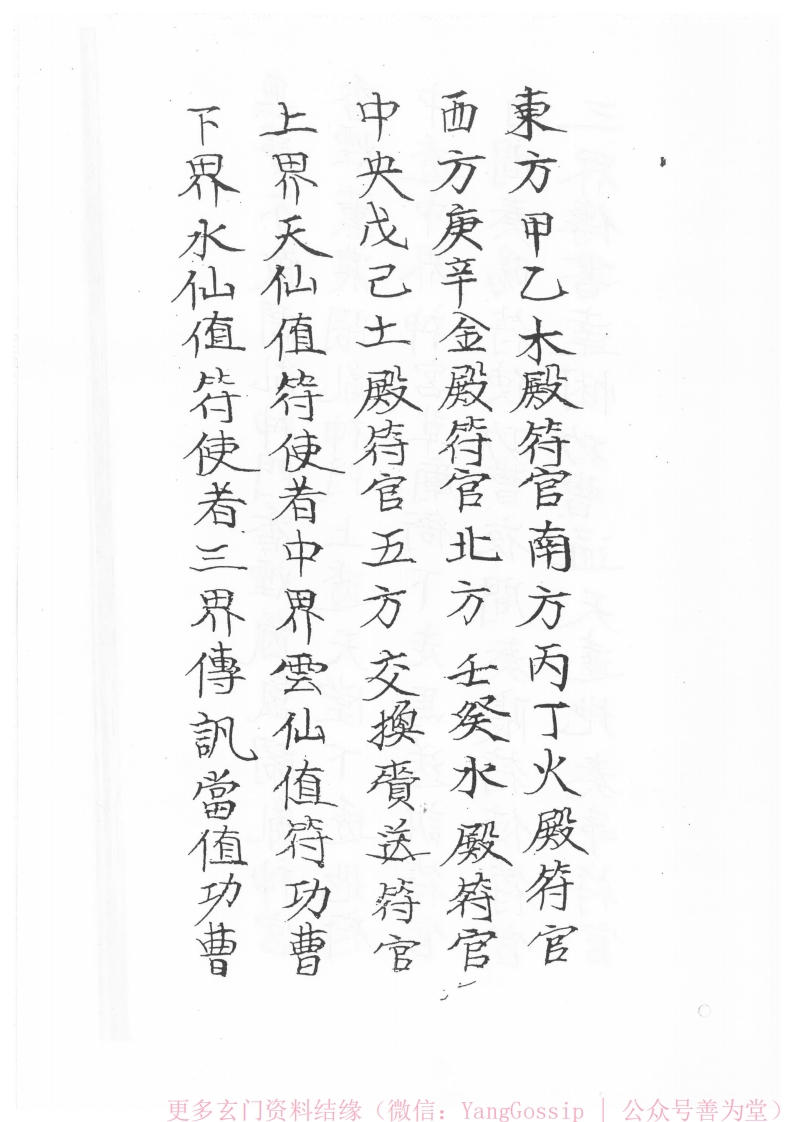 東方甲乙木殿符官南方丙丁火殿符官
西方庚辛金殿符官北方壬癸水殿符官
中央戊己土殿符官五方交換賫送符官
上界天仙值符使者中界雲仙值符功曹
下界水仙值符使者三界傳訊當值功曹
更多玄门资料结缘（微信：YangGossip | 公众号善为堂）